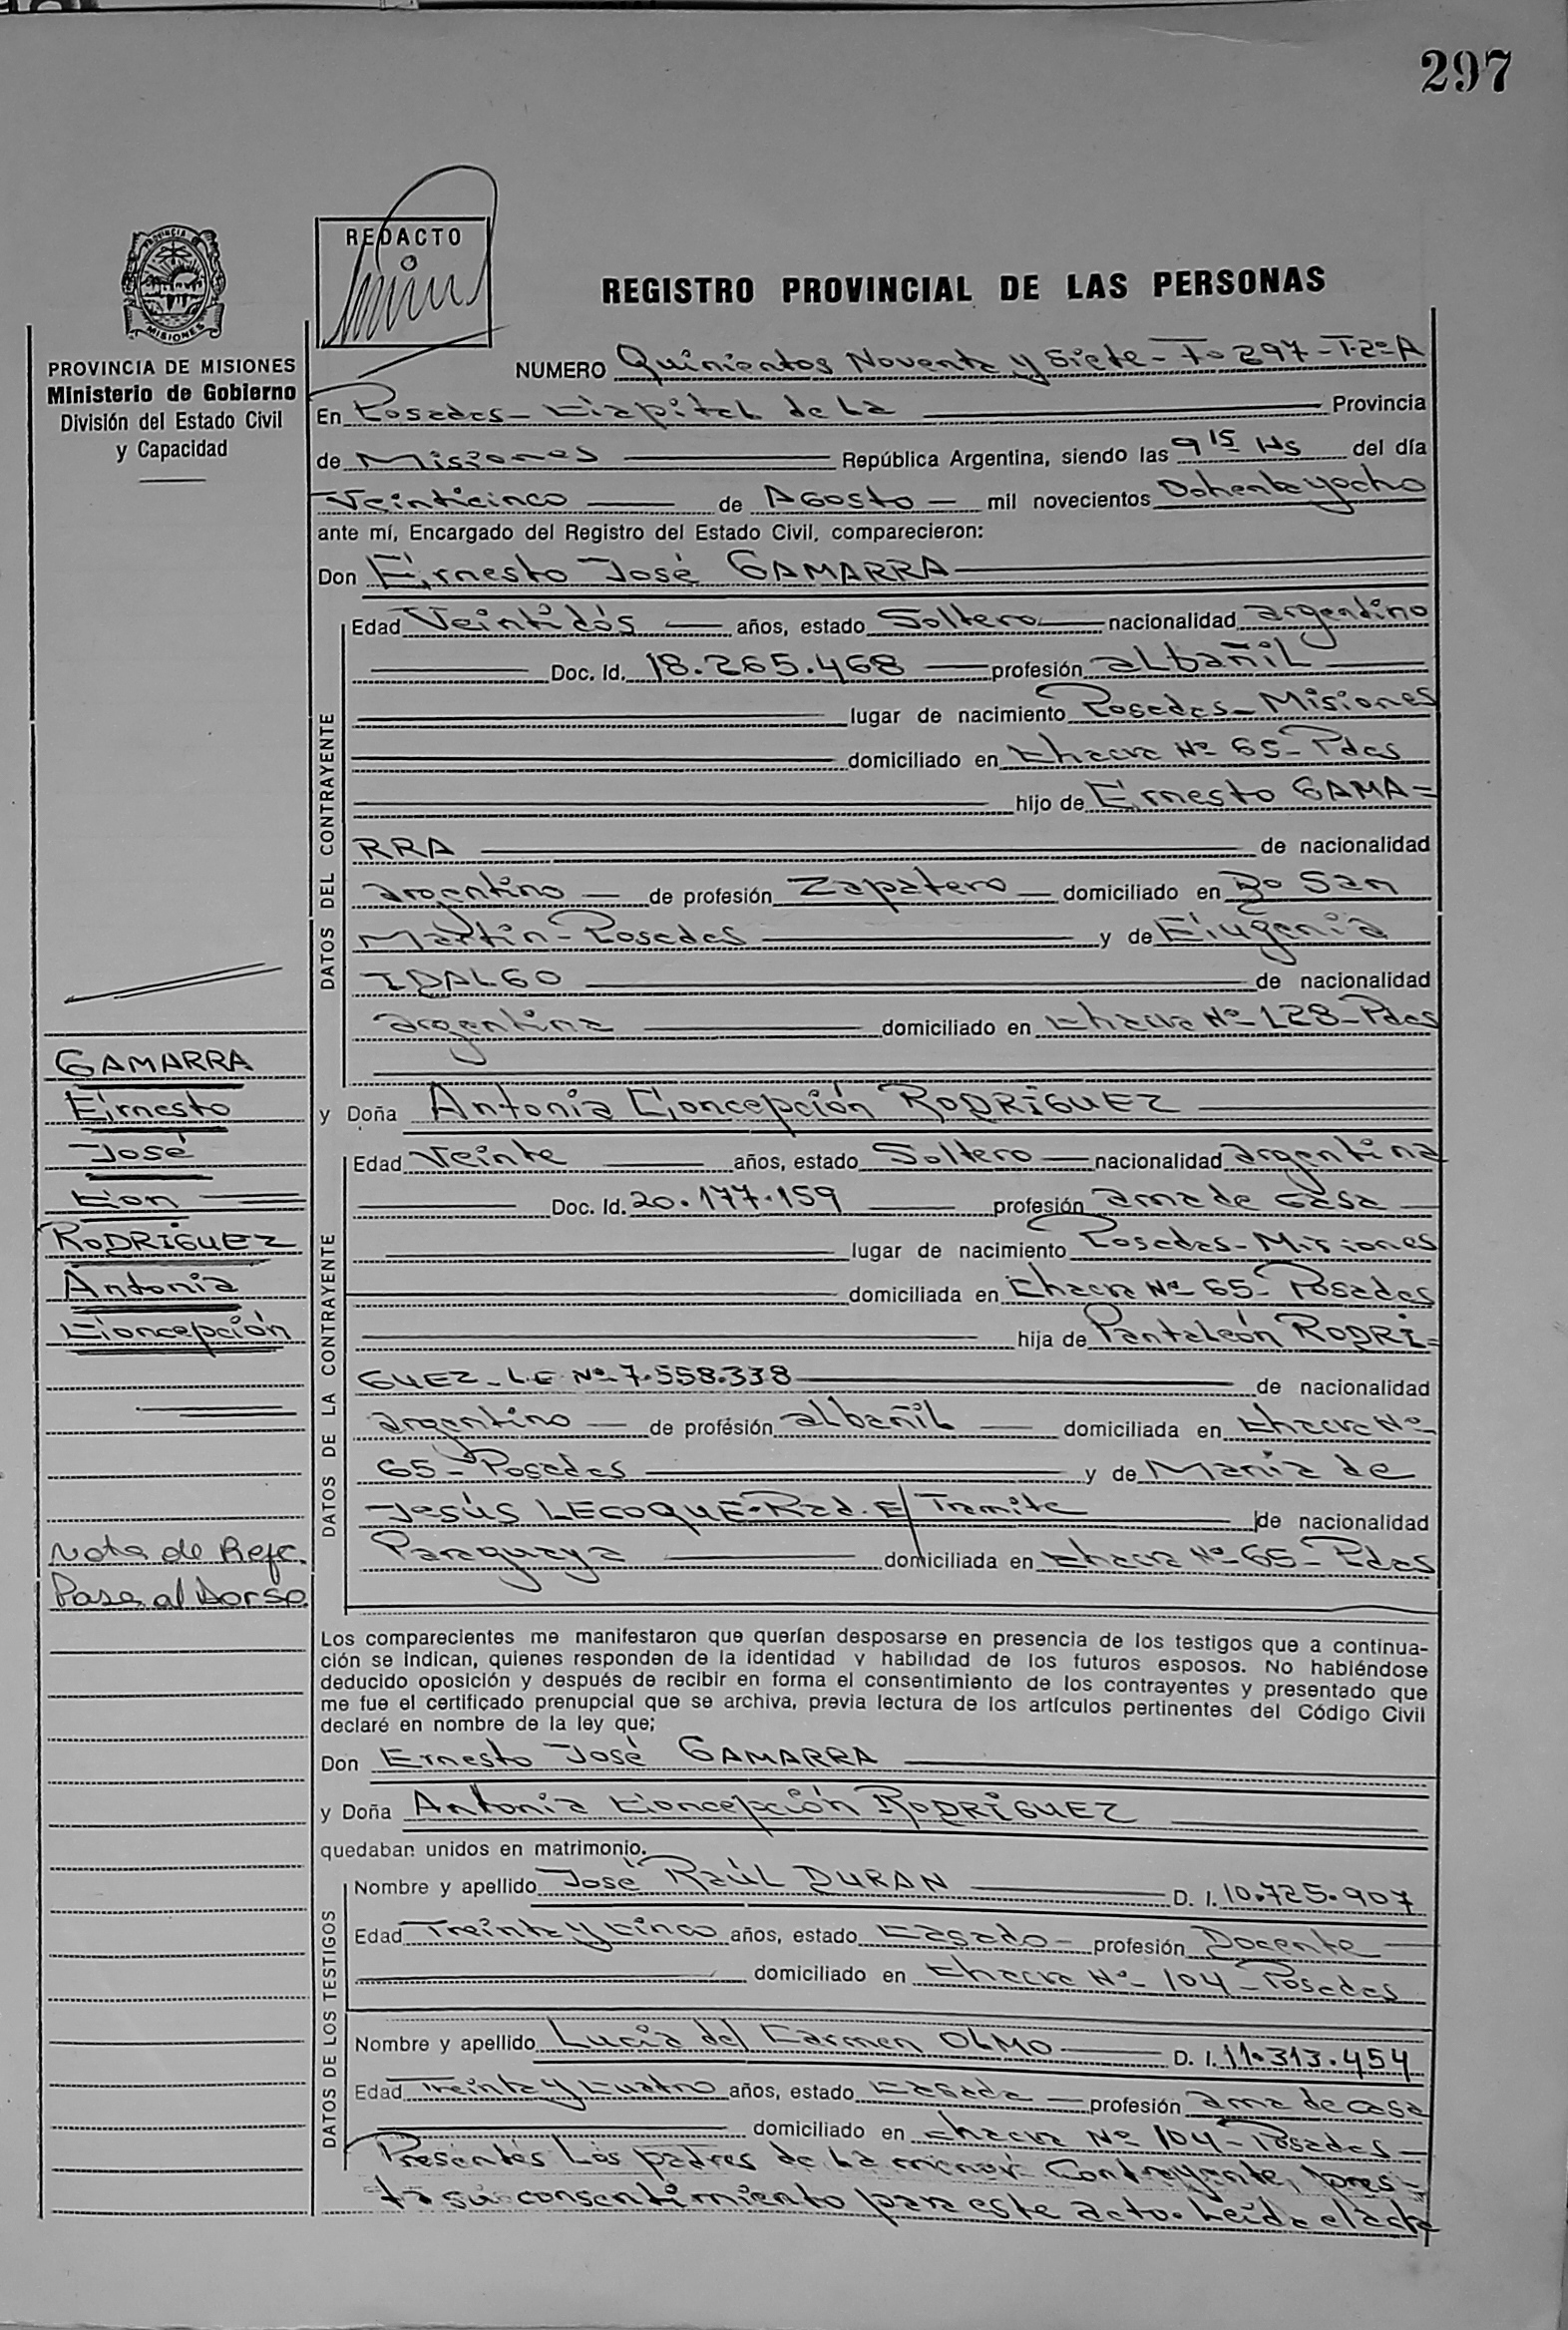 297
REDACTO
PROVINCIA DE MISIONES
Ministerio de Gobierno
División del Estado Civil
y Capacidad
REGISTRO PROVINCIAL DE LAS PERSONAS
NUMERO Quinientos Noventa y Siete - Fº 297 - T.2º A
En Posadas - Capital de la Provincia
de Misiones República Argentina, siendo las 9 15 Hs del día
Veinticinco de Agosto mil novecientos Ochenta y ocho
ante mí, Encargado del Registro del Estado Civil, comparecieron:
DATOS DEL CONTRAYENTE
Don Ernesto José GAMARRA
Edad Veintidós años, estado Soltero nacionalidad argentino
Doc. Id. 18.265.468 profesión albañil
lugar de nacimiento Posadas - Misiones
domiciliado en Chacra Nº 65 - Pdas
hijo de Ernesto GAMA=
RRA de nacionalidad
argentino de profesión Zapatero domiciliado en Bº San
Martín - Posadas y de Eugenia
IDALGO de nacionalidad
argentina domiciliado en Chacra Nº 128 - Pdas
y Doña Antonia Concepción RODRIGUEZ
DATOS DE LA CONTRAYENTE
Edad Veinte años, estado Soltero nacionalidad argentina
Doc. Id. 20.177.159 profesión ama de casa
lugar de nacimiento Posadas - Misiones
domiciliada en Chacra Nº 65 - Posadas
hija de Pantaleón RODRI=
GUEZ - L.E Nº 7.558.338 de nacionalidad
argentino de profesión albañil domiciliada en Chacra Nº
65 - Posadas y de María de
Jesús LECOQUE - Rad. E/ Tramite de nacionalidad
Paraguaya domiciliada en Chacra Nº 65 - Pdas
GAMARRA
Ernesto
José
Con
RODRIGUEZ
Antonia
Concepción
Nota de Refc.
Pasa al Dorso
Los comparecientes me manifestaron que querían desposarse en presencia de los testigos que a continua-
ción se indican, quienes responden de la identidad y habilidad de los futuros esposos. No habiéndose
deducido oposición y después de recibir en forma el consentimiento de los contrayentes y presentado que
me fue el certificado prenupcial que se archiva, previa lectura de los artículos pertinentes del Código Civil
declaré en nombre de la ley que;
Don Ernesto José GAMARRA
y Doña Antonia Concepción RODRIGUEZ
quedaban unidos en matrimonio.
DATOS DE LOS TESTIGOS
Nombre y apellido José Raúl DURAN D. I. 10.725.907
Edad Treinta y Cinco años, estado Casado profesión Docente
domiciliado en Chacra Nº 104 - Posadas
Nombre y apellido Lucia del Carmen OLMO D. I. 11.313.454
Edad Treinta y Cuatro años, estado Casada profesión ama de casa
domiciliado en Chacra Nº 104 - Posadas
Presentes los padres de la menor Contrayente, pres=
ta su consentimiento para este acto. Leída el acta